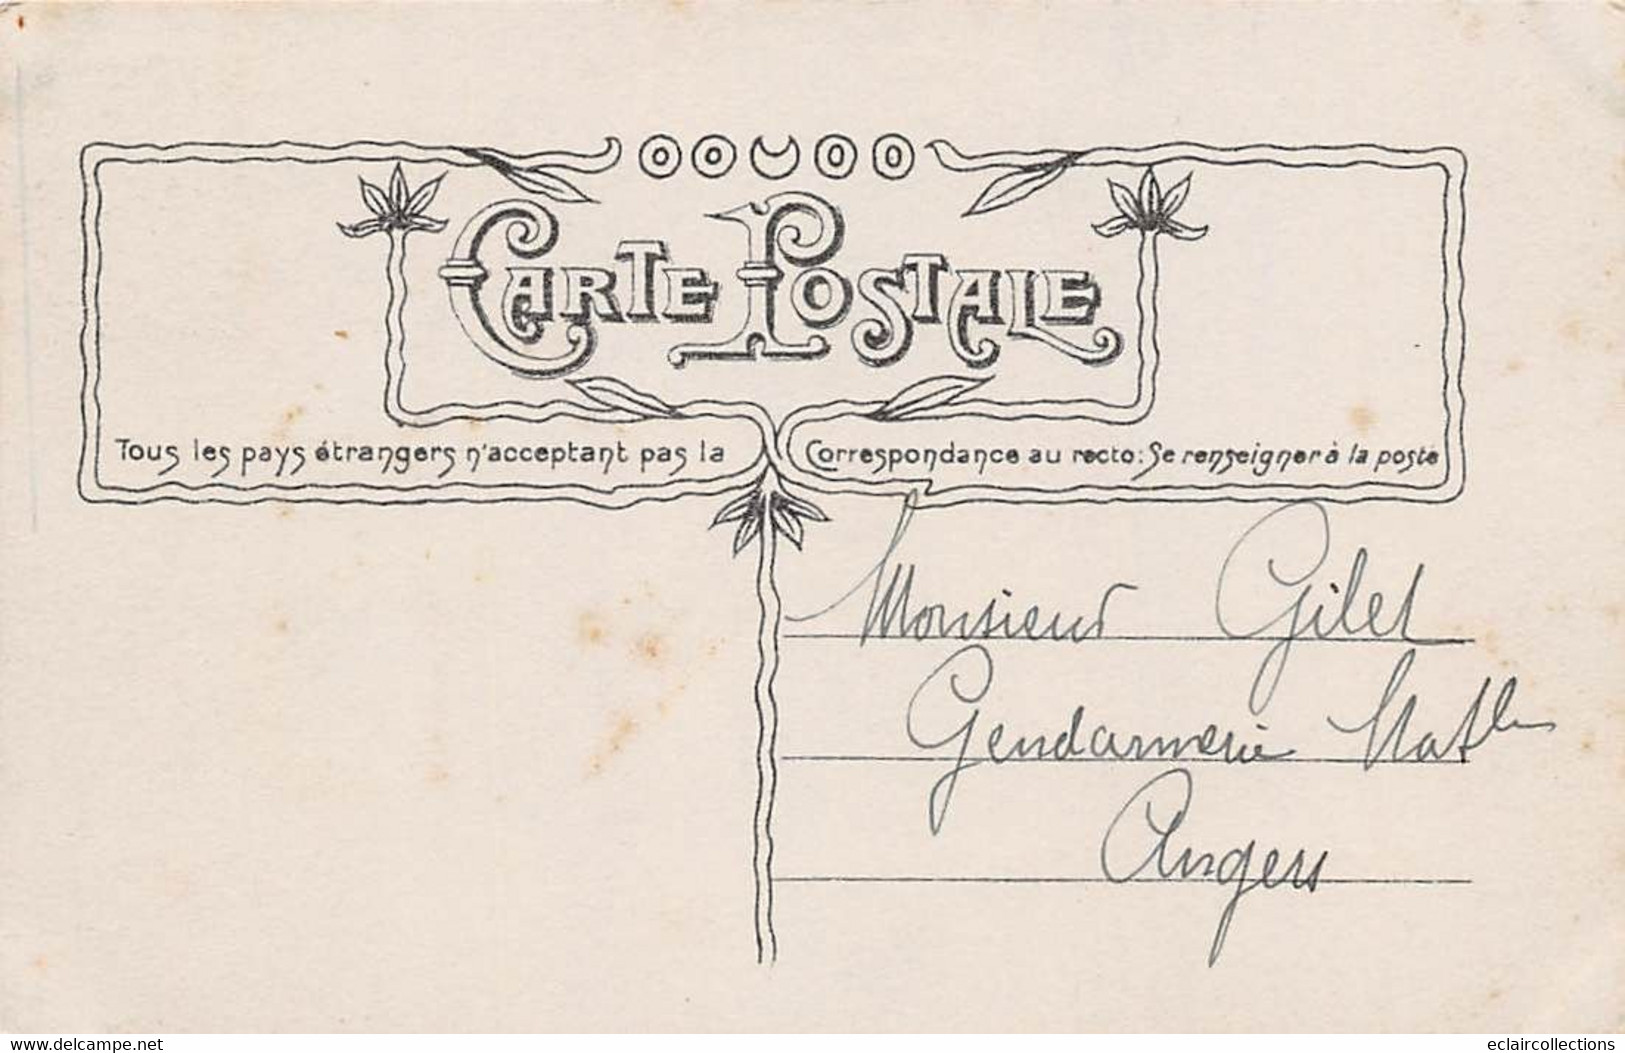 CARTE POSTALE
Tous les pays étrangers n'acceptant pas la Correspondance au recto: Se renseigner à la poste
Monsieur Gilet
Gendarmerie Natle
Angers
www.delcampe.net
eclaircollections